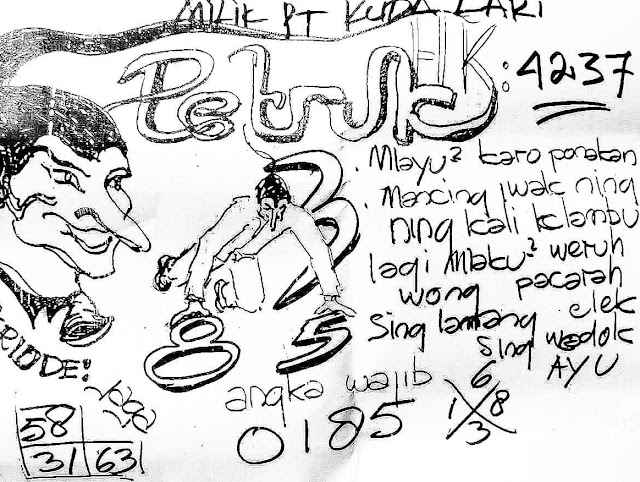 MILIK PT KUDA LARI
Petruk
HK : 4237
Mlayu² karo ponakan
Mancing iwak ning
ning kali klambu
lagi Mlaku² weruh
wong pacaran
Sing lanang elek
Sing wedok
AYU
3
8 5
angka wajib
0185
6
1 8
3
Jaga
58
31 63